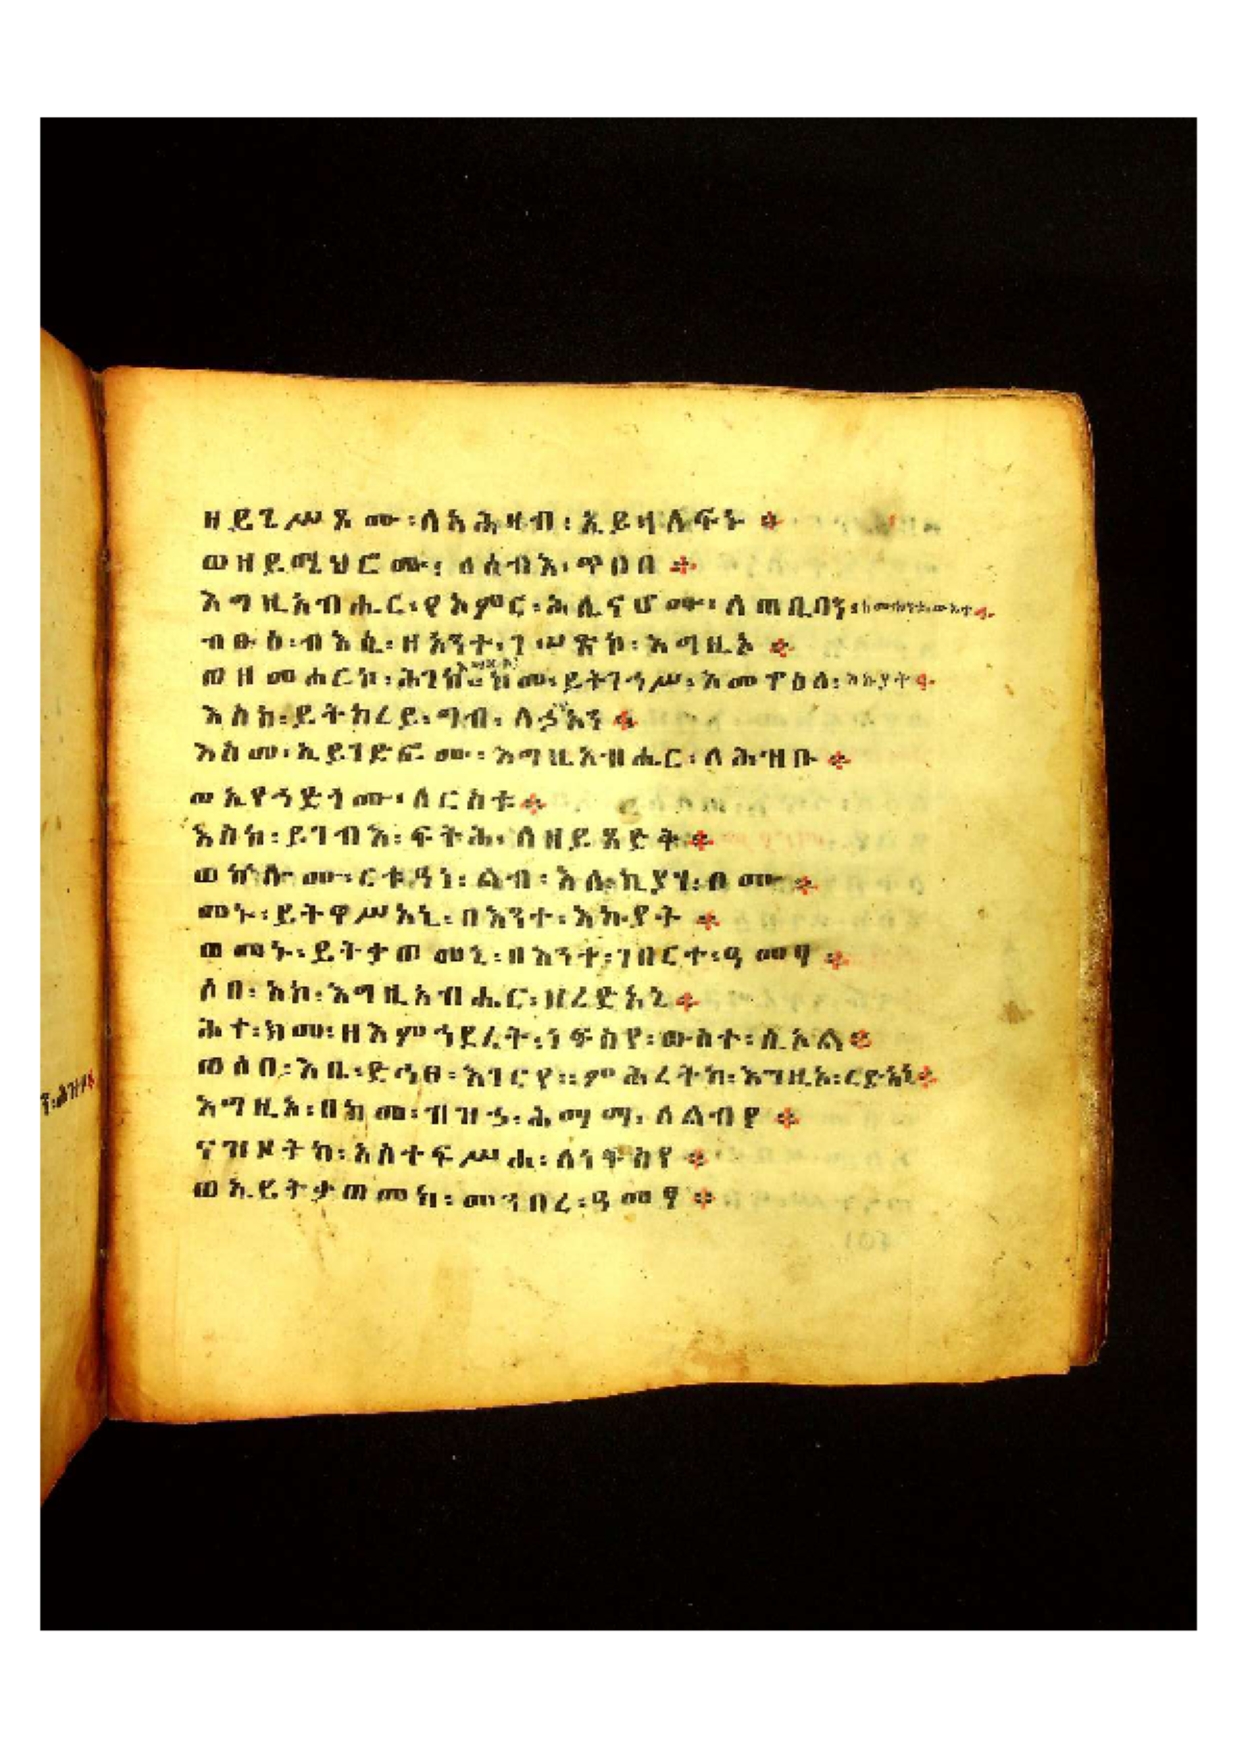 ዘይጌሥጾሙ፡ለአሕዛብ፡ኢይዛለፍኑ ።
ወዘይሜህሮሙ፡ ለሰብእ፡ጥበበ ።
እግዚአብሔር፡የአምር፡ሕሊናሆሙ፡ለጠቢባን፡ከመከንቱ፡ውእቱ።
ብፁዕ፡ብእሲ፡ዘአንተ፡ገሠጽኮ፡እግዚኦ ።
ወዘመሐርኮ፡ሕገከ፡ ከመ፡ይትገኅሥ፡እመዋዕለ፡እኩያት።
እስከ፡ይትከረይ፡ግብ፡ለኃጥእን ።
እስመ፡ኢይገድፎሙ፡እግዚአብሔር፡ለሕዝቡ ።
ወኢየኅድጎሙ፡ለርስቱ።
እስከ፡ይገብእ፡ፍትሕ፡ለዘይጸድቅ።
ወኵሎሙ፡ርቱዓነ፡ልብ፡እለ፡ኪያሃ፡ቦሙ።
መኑ፡ይትዋሥአኒ፡በእንተ፡እኩያት ።
ወመኑ፡ይትቃወመኒ፡በእንተ፡ገበርተ፡ዓመፃ ።
ሶበ፡አኮ፡እግዚአብሔር፡ዘረድአኒ።
ሕቀ፡ከመ፡ዘእምኀደረት፡ነፍስየ፡ውስተ፡ሲኦል።
ወሶበ፡እቤ፡ድኅፀ፡እገርየ፡፡ምሕረትከ፡እግዚኦ፡ረድአኒ።
እግዚኦ፡በከመ፡ብዝኃ፡ሕማማ፡ለልብየ ።
ናዝዞትከ፡አስተፍሥሐ፡ለነፍስየ ።
ወኢይትቃወመከ፡መንበረ፡ዓመፃ ።